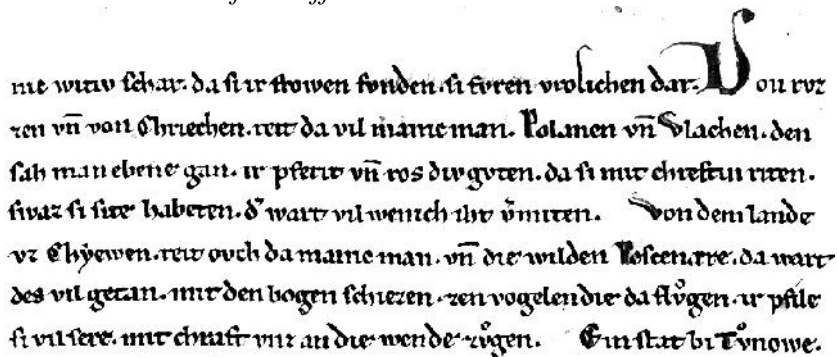 nic witiv schar. da si ir frowen fvnden. si fvren vrolichen dar. Von rvz
zen vn̄ von Chriechen. reit da vil manic man. Polanen vn̄ Vlachen. den
sah man ebene gan. ir pferit vn̄ ros div gvten. da si mit chreften riten.
swaz si site habeten. d͛ wart vil wenich iht v̄miten. Von dem lande
vz Chyewen. reit ovch da manic man. vn̄ die wilden Poscenære. da wart
des vil getan. mit den bogen schiezen. zen vogelen die da flvͦgen. ir pfile
si vil sere. mit chraft vnz an die wende zvͦgen. Ein stat bi Tvͦnowe.